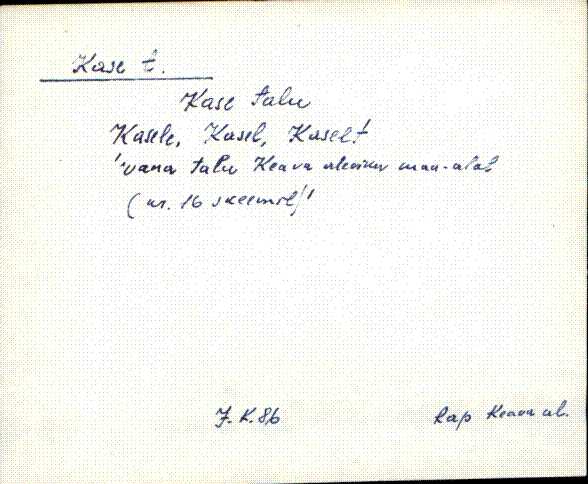 Kase t.
Kase talu
Kasele, Kasel, Kaselt
'vana talu Keava aleviku maa-alal
(nr. 16 skeemil)'
J. K. 86
Rap Keava al.